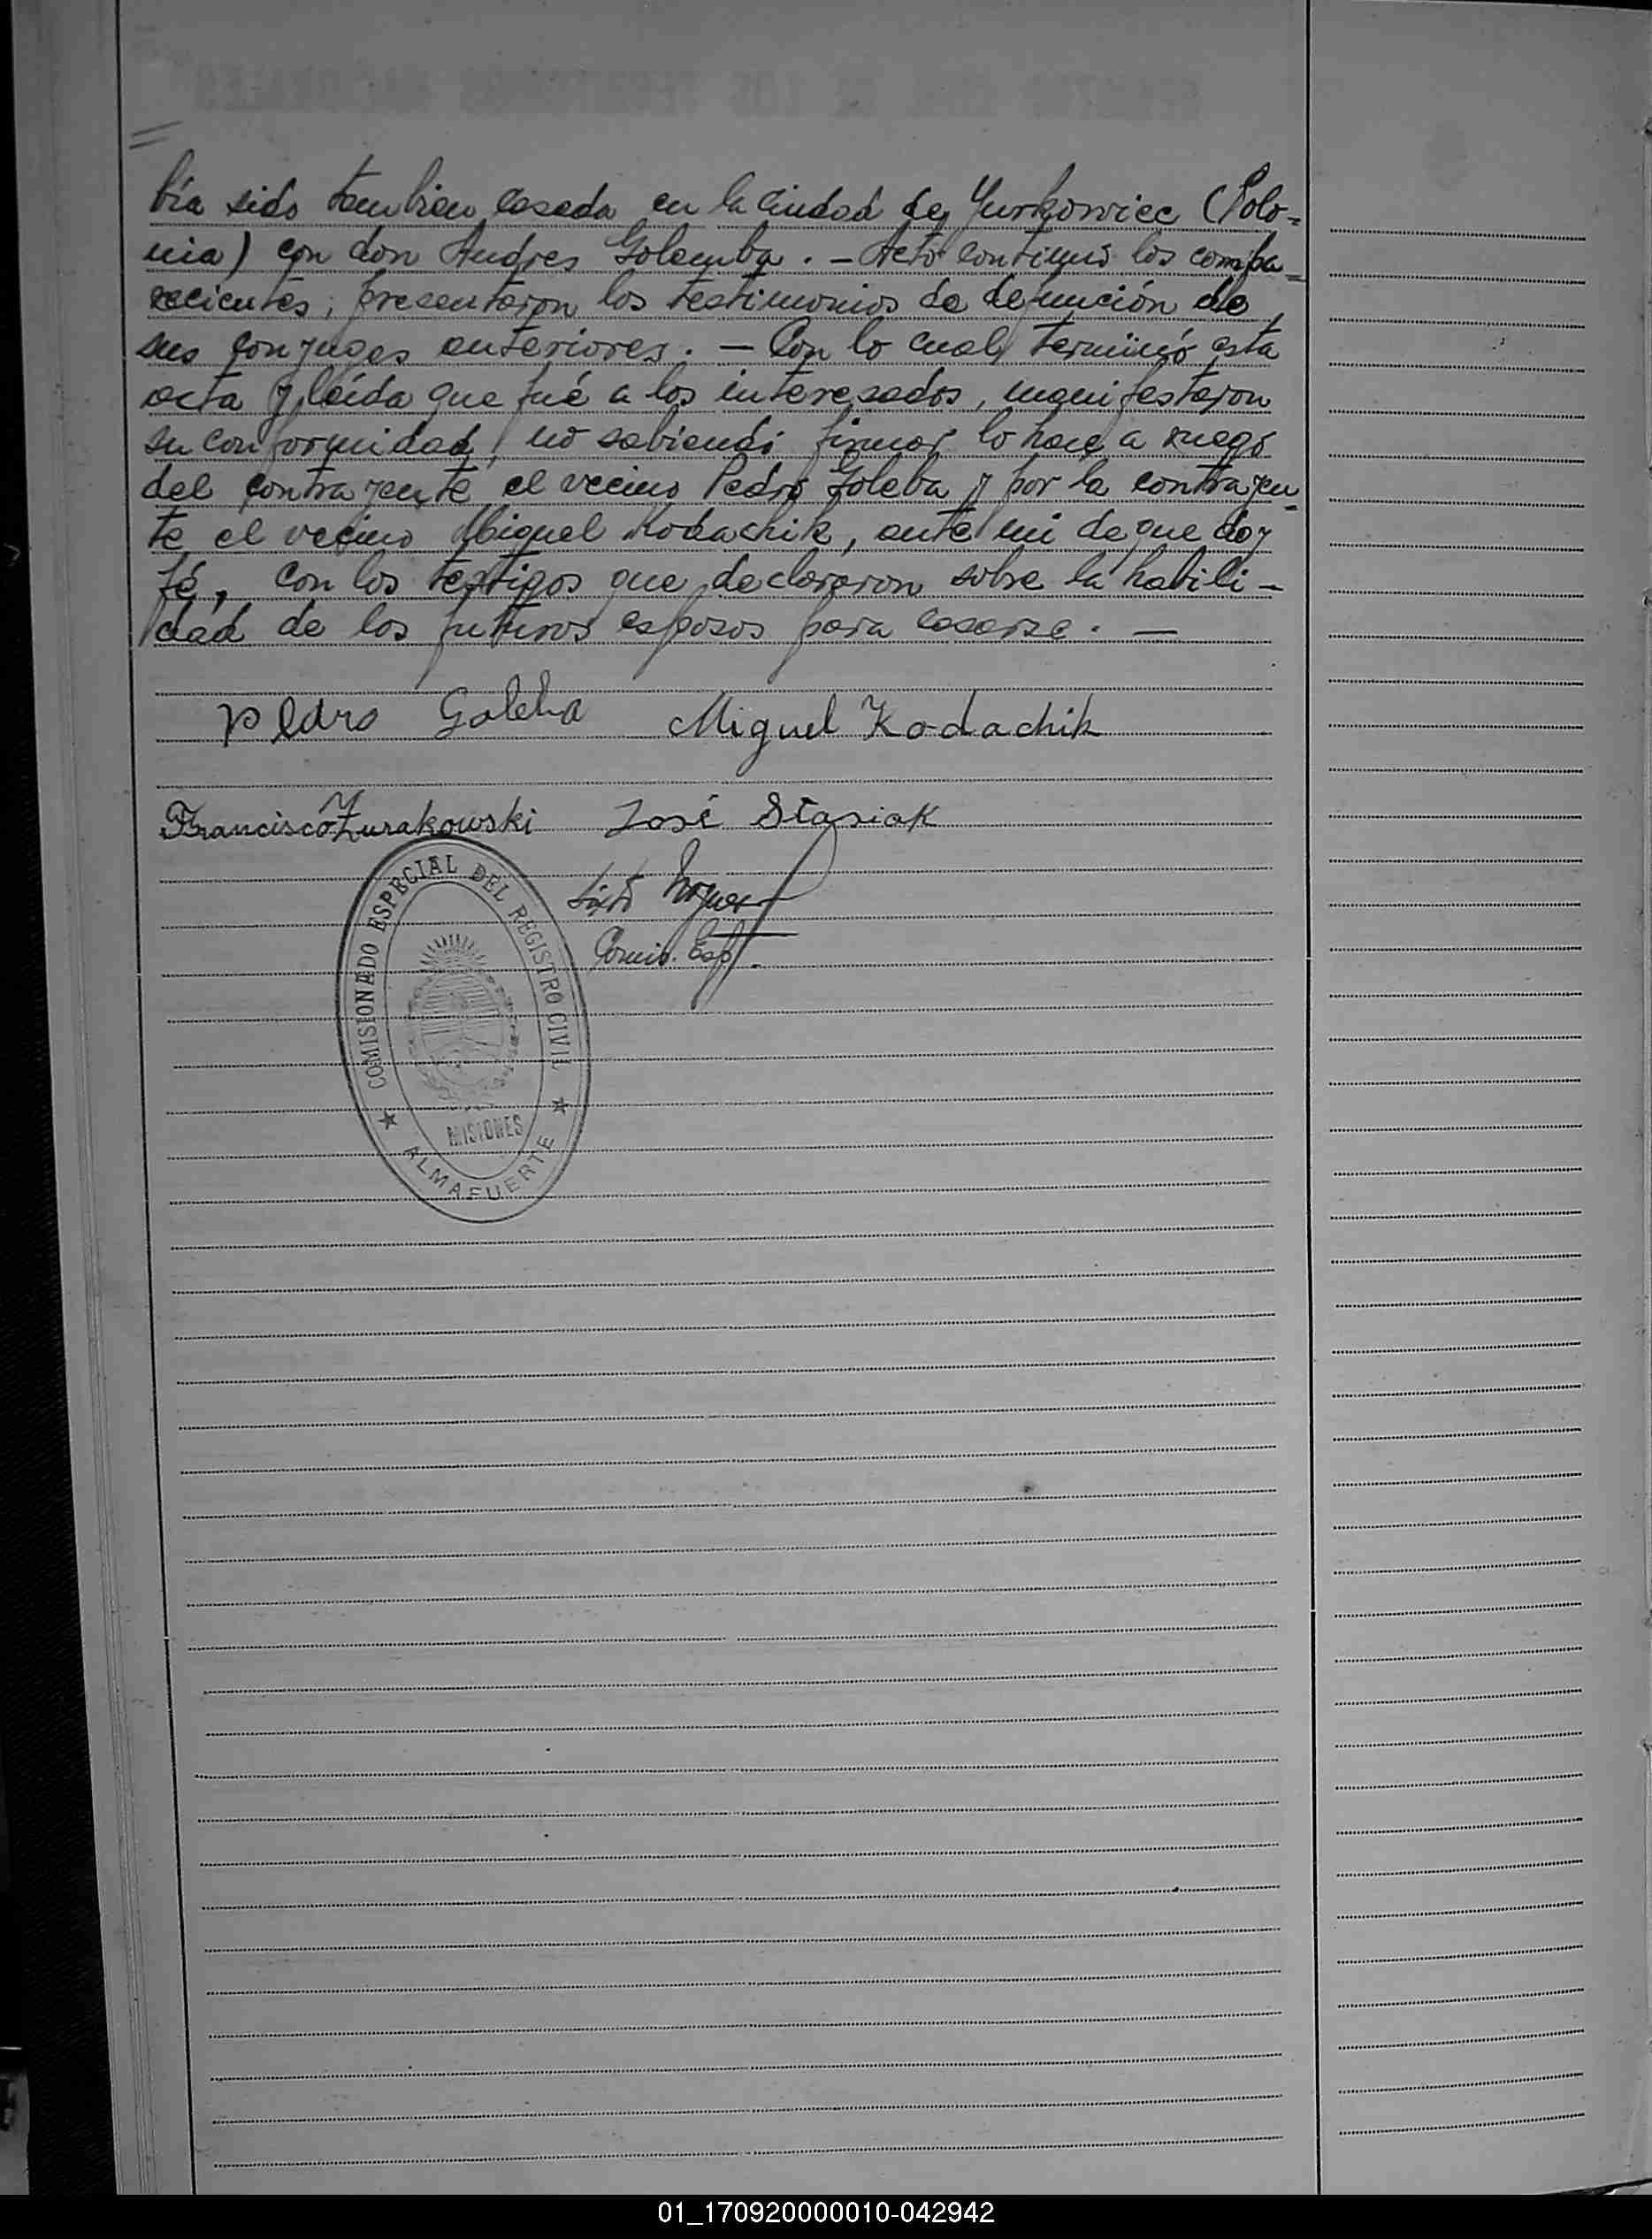 =
bía sido tambien casada en la ciudad de Yurkowiec (Polo=
nia) con don Andres Golemba. - Acto continuo los compa=
recientes, presentaron los testimonios de defunción de
sus conyuges anteriores. - Con lo cual, terminó esta
acta y leída que fué a los interesados, manifestaron
su conformidad, no sabiendo firmar lo hace a ruego
del contrayente el vecino Pedro Goleba y por la contrayen=
te el vecino Miguel Kodachik, ante mi de que doy
fé, con los testigos que declararon sobre la habili-
dad de los futuros esposos para casarse. -
Pedro Goleba Miguel Kodachik
Francisco Zurakowski José Stasiak
Sixto
Comis. Esp.
COMISIONADO ESPECIAL DEL REGISTRO CIVIL
MISIONES
★ ALMAFUERTE ★
01_170920000010-042942